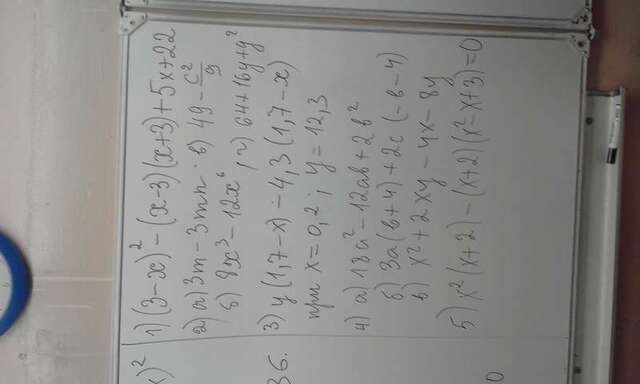 x)²
1) (3-x)² - (x-3)(x+3)+5x+22
2) а) 3m - 3mn · в) 49 - c²/9
б) 8x³ - 12x⁶, г) 64+16y+y²
36.
3) y(1,7-x) - 4,3(1,7-x)
при x=0,2; y=12,3
4) а) 18a² - 12ab + 2b²
б) 3a(b+4) + 2c(-b-4)
в) x² + 2xy - 4x - 8y
5) x²(x+2) - (x+2)(x²-x+3)=0
0